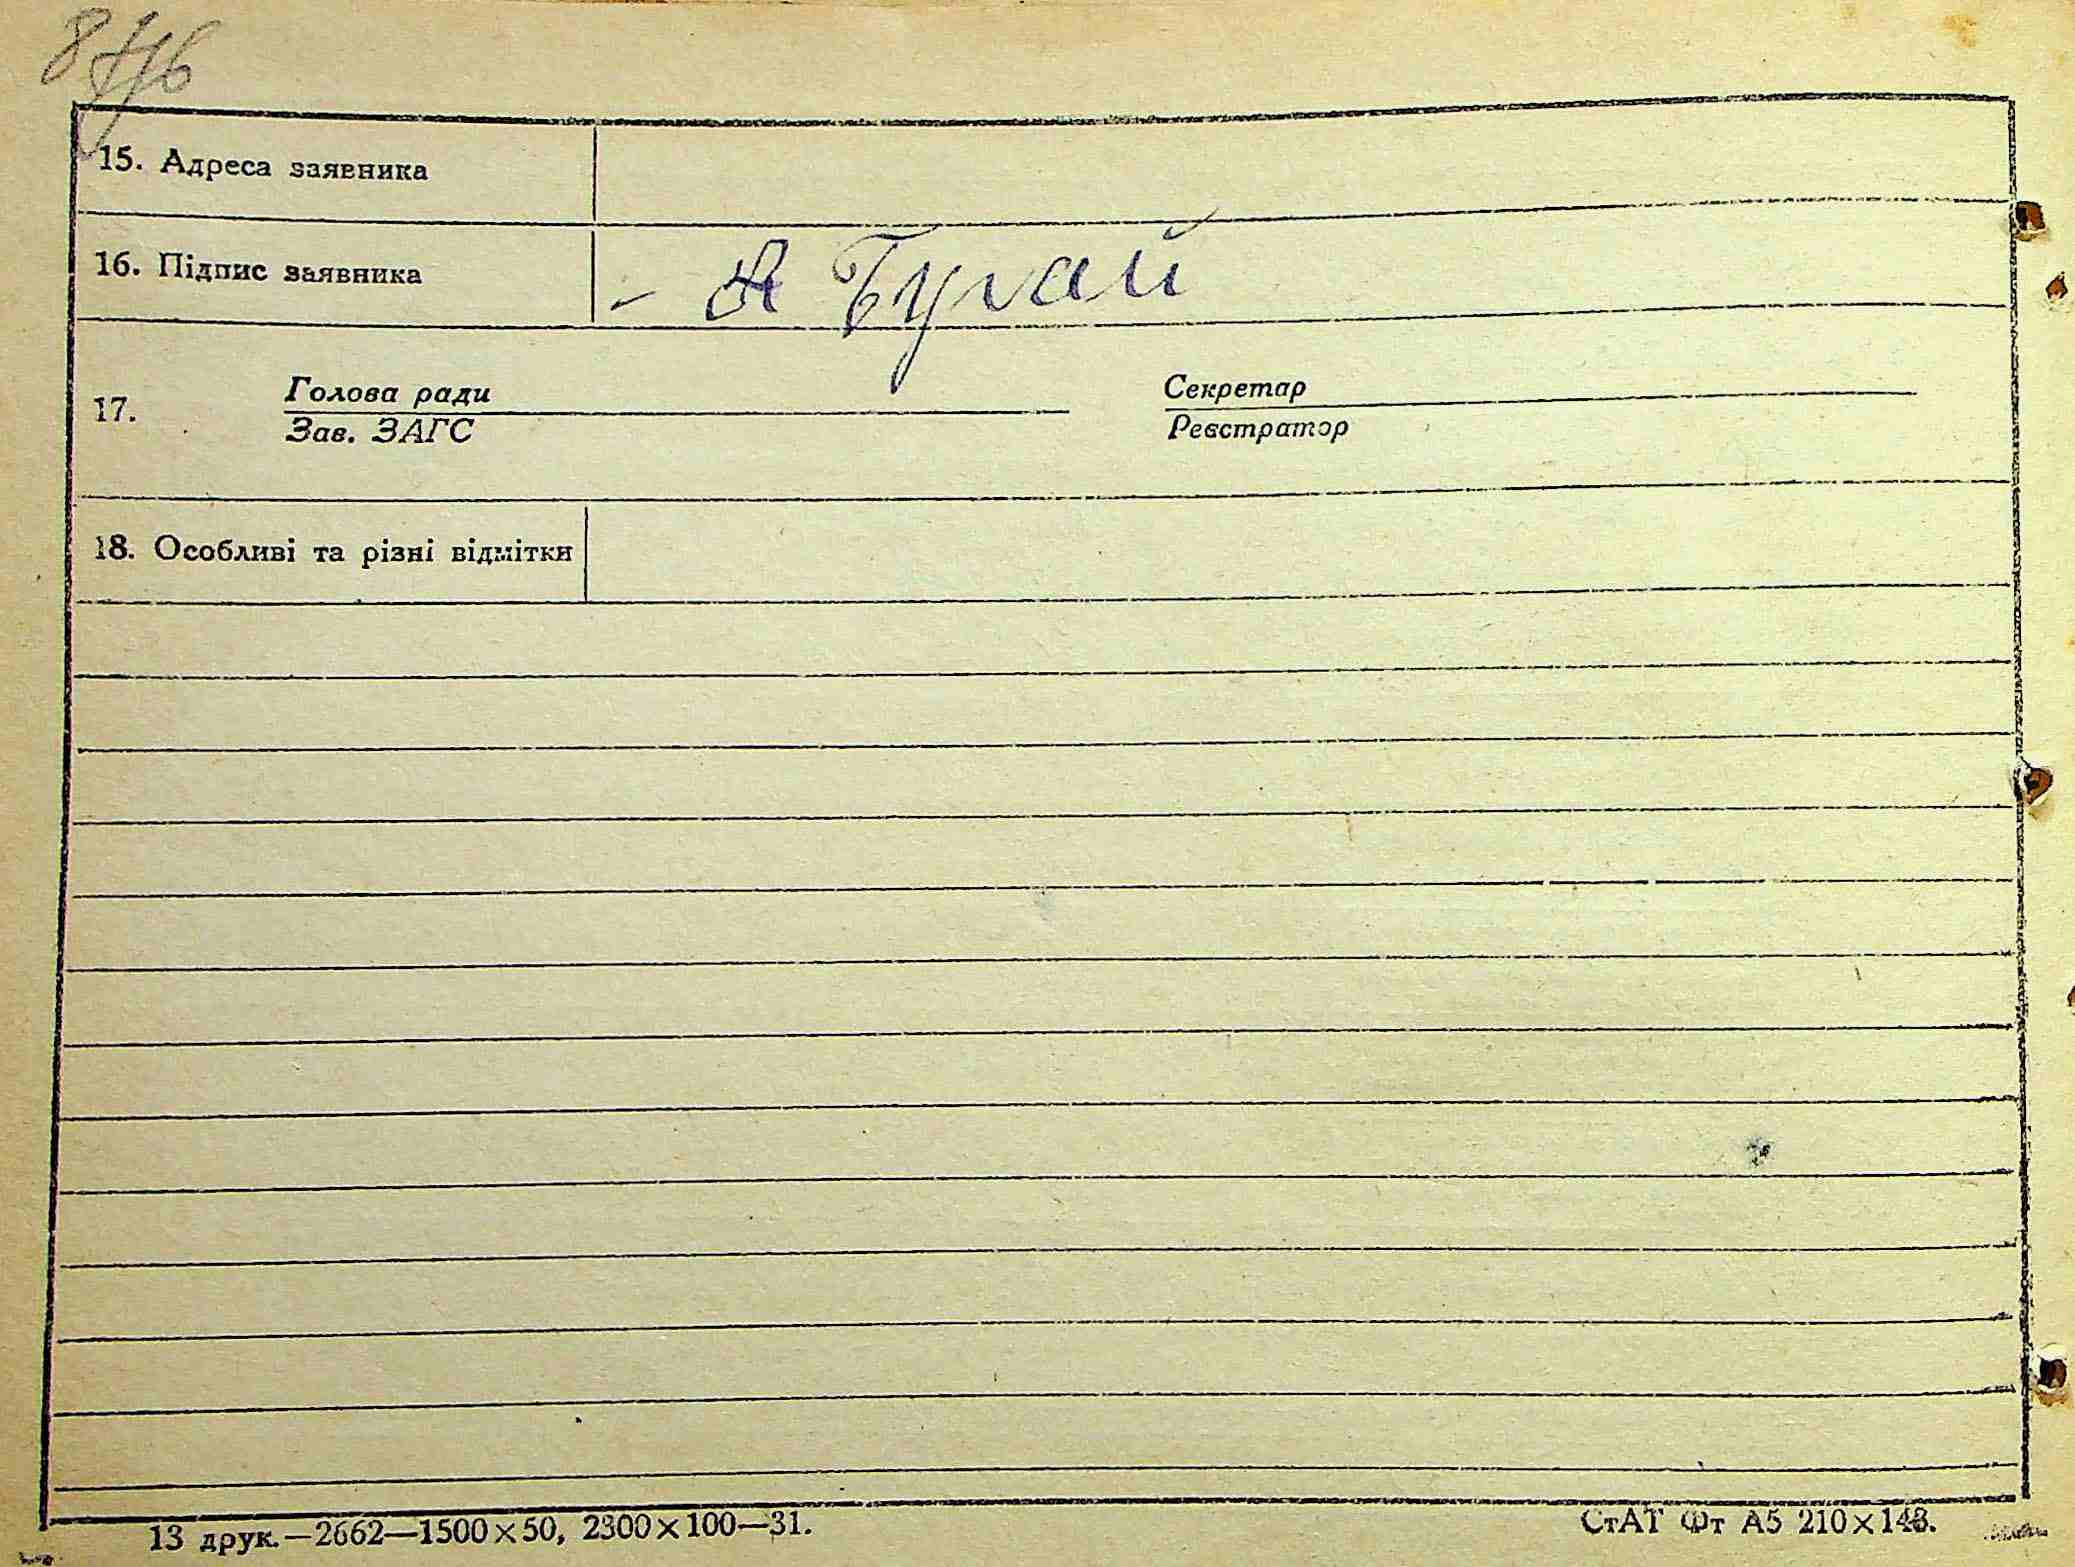 15. Адреса заявника
16. Підпис заявника - Я Бугай
17. Голова ради Секретар
Зав. ЗАГС Реєстратор
18. Особливі та різні відмітки
13 друк.—2662—1500×50, 2300×100—31. СтАТ Фт А5 210×148.